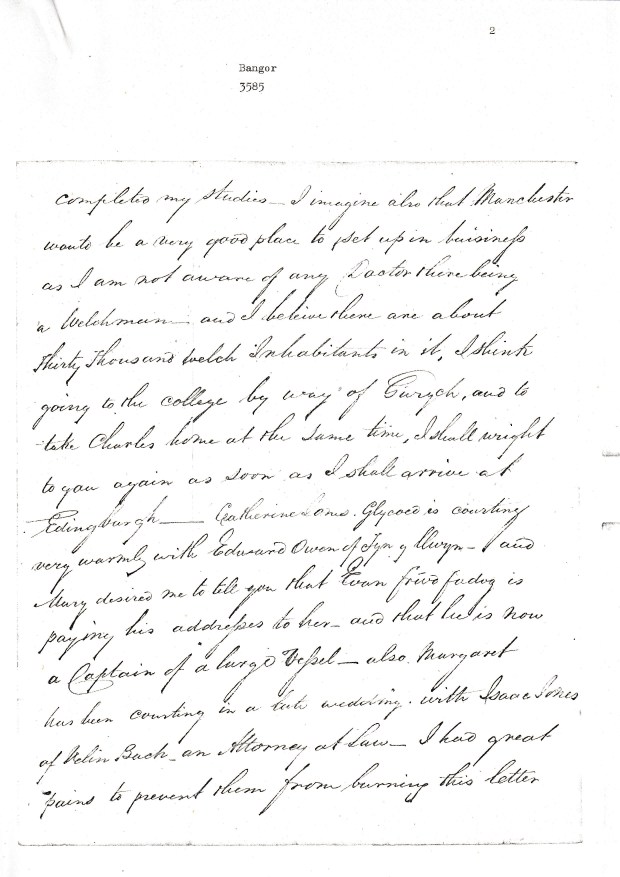 2
Bangor
3585
completed my studies — I imagine also that Manchester
would be a very good place to set up in buisiness
as I am not aware of any Doctor there being
a Welchman — and I beleive there are about
thirty thousand welch Inhabitants in it, I think
going to the college by way of and to
take Charles home at the same time, I shall wright
to you again as soon as I shall arrive at
Edingburgh — Catherine Jones. Glycoed is courting
very warmly with Edward Owen of Tyn y llwyn — and
Mary desired me to tell you that Evan is
paying his addresses to her — and that he is now
a Captain of a large Vessel — also Margaret
has been courting in a late with Isaac Jones
of Velin Bach — an Attorney at Law — I had great
pains to prevent them from burning this letter